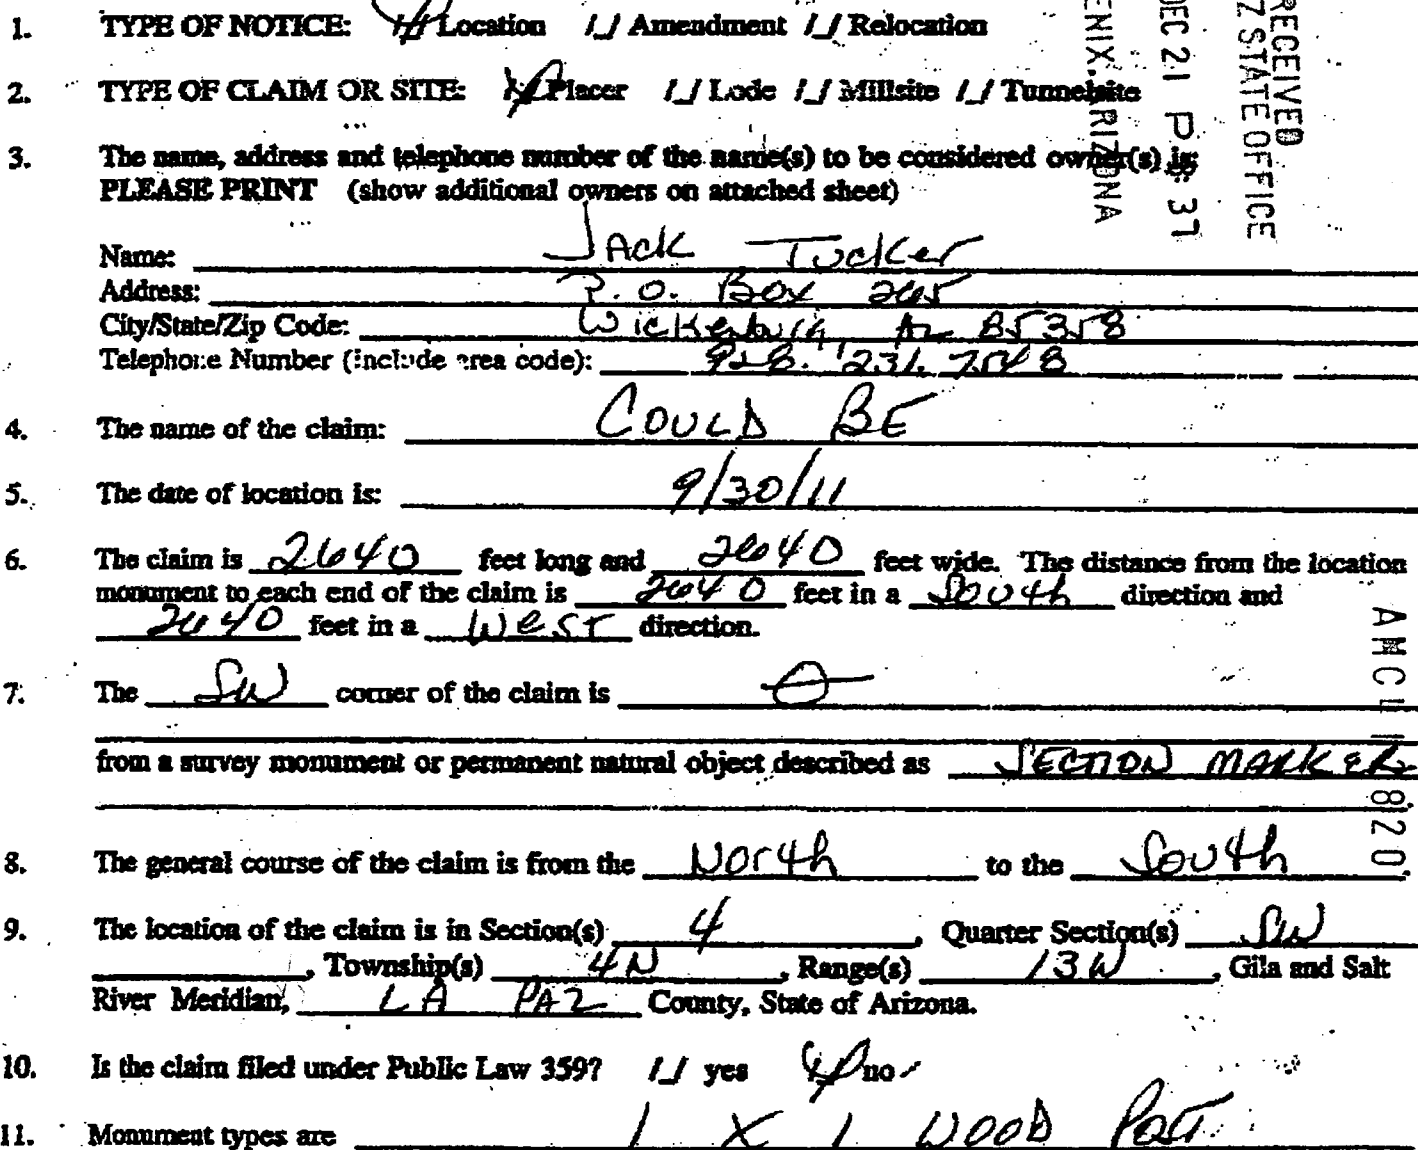 1. TYPE OF NOTICE: /_/ Location /_/ Amendment /_/ Relocation
2. TYPE OF CLAIM OR SITE: /_/ Placer /_/ Lode /_/ Millsite /_/ Tunnelsite
3. The name, address and telephone number of the name(s) to be considered owner(s) is:
PLEASE PRINT (show additional owners on attached sheet)
Name: Jack Tucker
Address: P.O. Box 265
City/State/Zip Code: Wickenburg Az 85358
Telephone Number (include area code): 928. 231. 7548
4. The name of the claim: COULD BE
5. The date of location is: 9/30/11
6. The claim is 2640 feet long and 2640 feet wide. The distance from the location
monument to each end of the claim is 2640 feet in a South direction and
2640 feet in a West direction.
7. The SW corner of the claim is 0
from a survey monument or permanent natural object described as SECTION MARKER
8. The general course of the claim is from the North to the South
9. The location of the claim is in Section(s) 4, Quarter Section(s) SW
, Township(s) 4N, Range(s) 13W, Gila and Salt
River Meridian, LA PAZ County, State of Arizona.
10. Is the claim filed under Public Law 359? /_/ yes /_/ no
11. Monument types are 1 X 1 WOOD POST
RECEIVED
Z STATE OFFICE
DEC 21 P 37
ENIX, ARIZONA
AMC 820